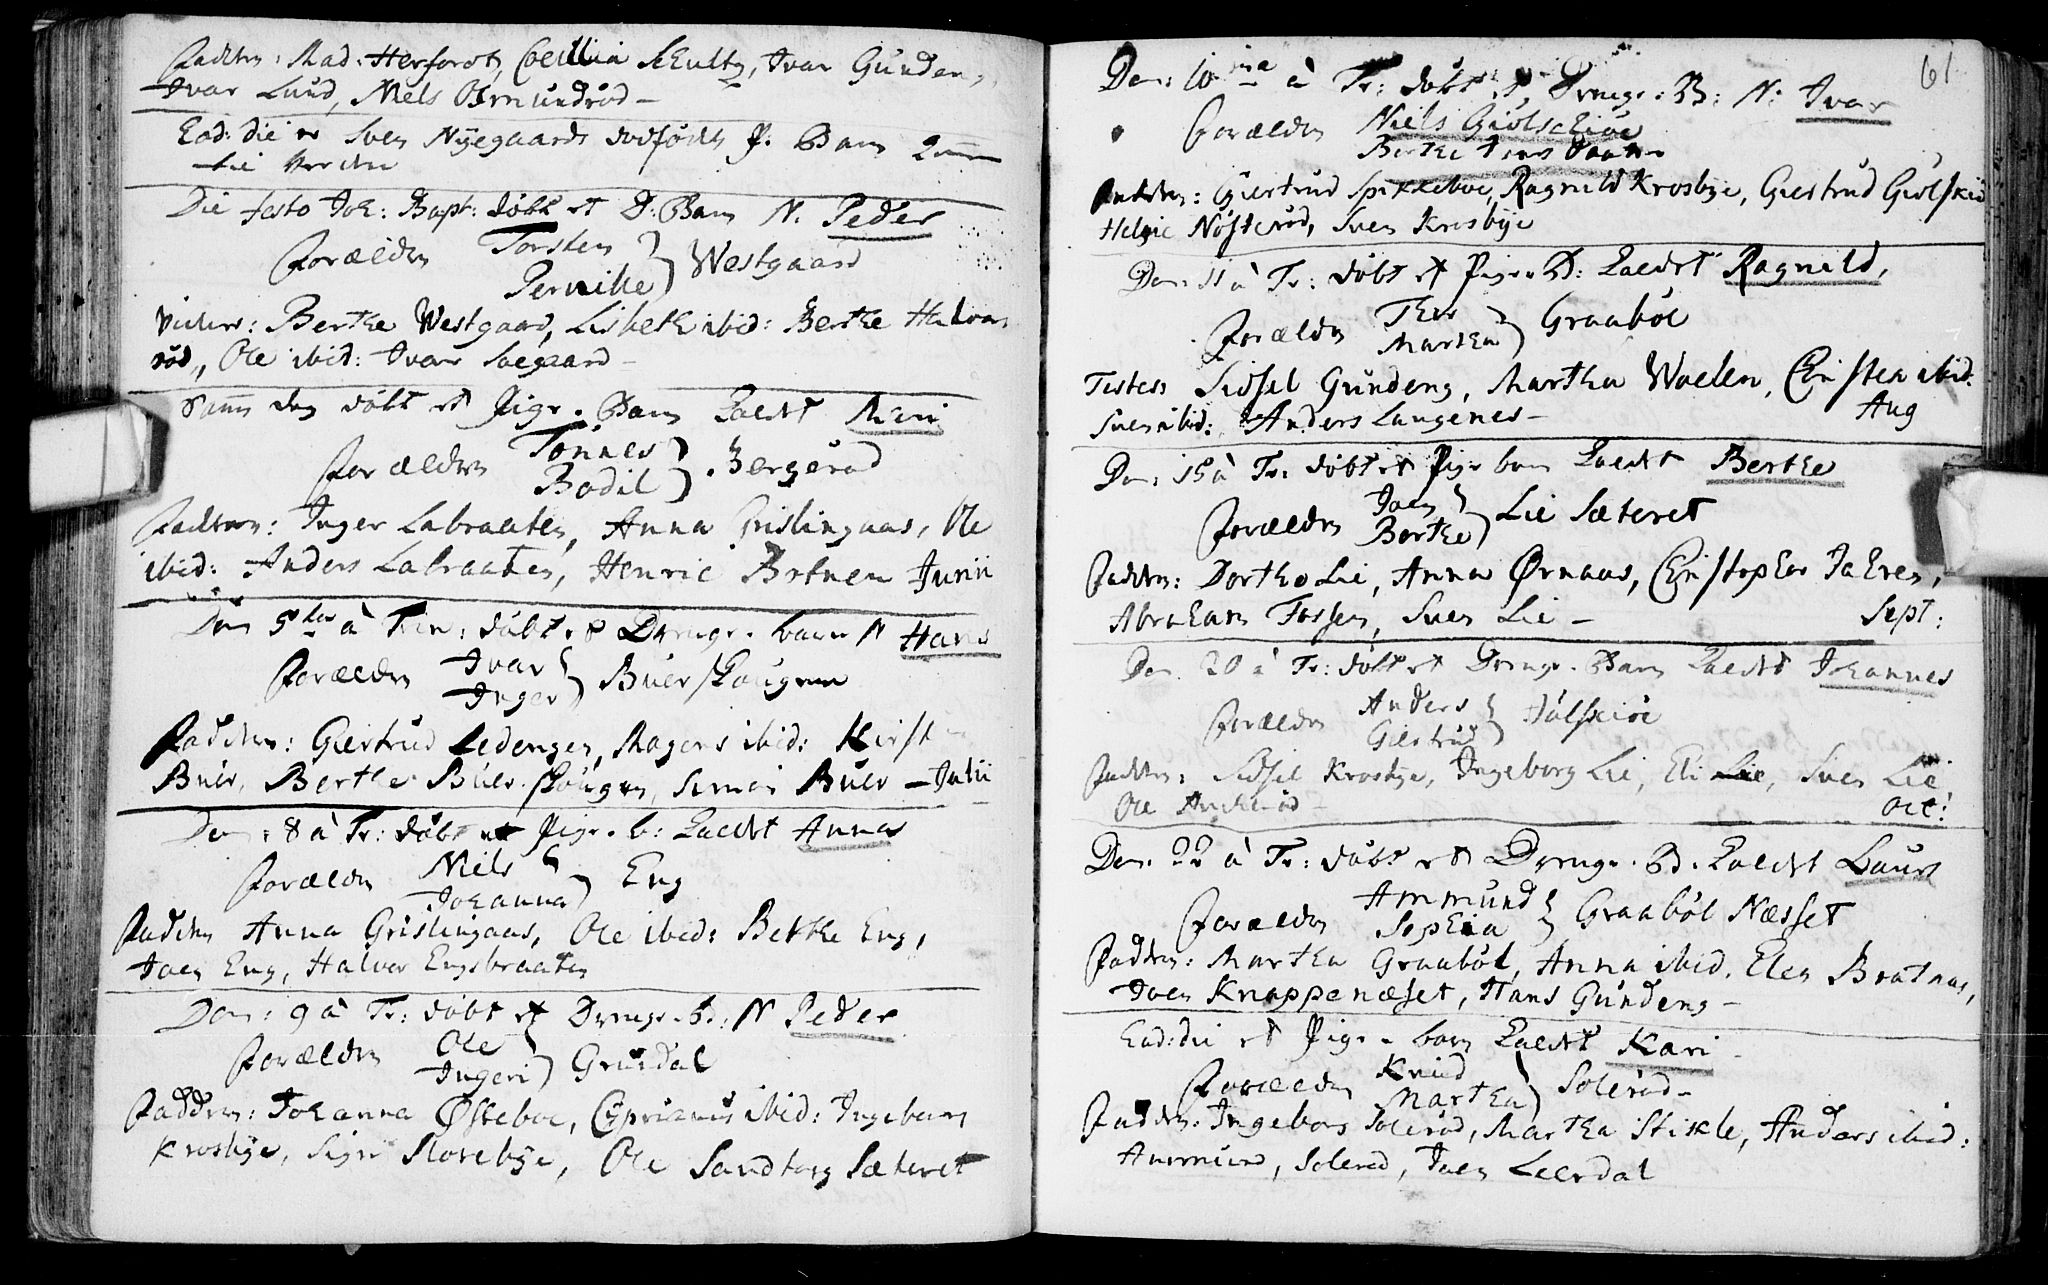 Faddere: Mad: Herforst, Coecilia Schultz, Ivar Gunderg,
Ivar Lund, Niels Osmundrød –
Ead: die er Sven Nyegaards dødfødte P. Barn
Die festo Joh: Bapt: døbt et D: Barn N. Peder
Forældre Torsten
Pernille } Westgaard
Vidner: Berthe Westgaard, Lisbeth ibid: Berthe Halvor
rød, Ole ibid: Ivar Soegaard –
Samme dag døbt et Pige-Barn kaldt Mari
Forældre Tønnes
Bodil } Bergerød
Faddere: Inger Labraaten, Anna Grislingaas, Ole
ibid: Anders Labraaten, Henric Bratnen Junii
Dom 5ta à Trin: døbt et Drenge-barn N Hans
Forældre Ivar
Inger } Buerskougen
Faddere: Giertrud Ledengen, Mogens ibid: Kirsten
Buer, Berthe Buerskougen, Simen Buer – Julii
Dom: 8 à Tr: døbt et Pige-b: kaldt Anna
Forældre Niels
Johanna } Eng
Faddere Anna Grislingaas, Ole ibid: Berthe Eng,
Joen Eng, Halvor Engebraaten
Dom: 9 à Tr: døbt et Drenge-B: N Peder
Forældre Ole
Ingeri } Grusdal
Faddere: Johanna Østeboe, Cyprianus ibid: Ingeborg
Krosbye, Sigri Slorebye, Ole Sandtorg Sæteret
61
Dom: 10ma à Tr: døbt et Drenge-B: N: Ivar
Forældre Niels Giølschiøe
Berthe Ivers Daatter
Faddere: Giertrud Spikkeboe, Ragnild Krosbye, Giertrud Giølskiø
Helgie Nøsterød, Sven Krosbye
Dom: 11 à Tr: døbt et Pige-B: kaldt Ragnild,
Forældre Thor
Martha } Graabøl
Testes: Sidsel Gundeng, Martha Woelen, Christen ibid.
Sven ibid: Anders Langenes – Aug
Dom: 15 à Tr: døbt et Pige barn kaldt Berthe
Forældre Joen
Berthe } Lie Sæteret
Faddere: Dorthe Lie, Anna Ørnaas, Christopher
Abraham Fossen, Sven Lie – Sept:
Dom. 20 à Tr: døbt et Drenge-Barn kaldt Johannes
Forældre Anders
Giertrud } Jølschiøe
Faddere: Sidsel Krosbye, Ingeborg Lie, Eli Lie, Sven Lie
Ole Ankerød – Oct:
Dom. 22 à Tr: døbt et Drenge-B. kaldt Laurs
Forældre Ammund
Sophia } Graabøl Næsset
Faddere: Martha Graabøl, Anna ibid, Elen Bratnas,
Joen Knappenæset, Hans Gundeng –
Ead: die et Pige-barn kaldt Kari –
Forældre Knud
Martha } Solerød –
Faddere: Ingeborg Solerød, Martha Stikle, Anders ibid:
Ammund, Solerød, Joen Leerdal